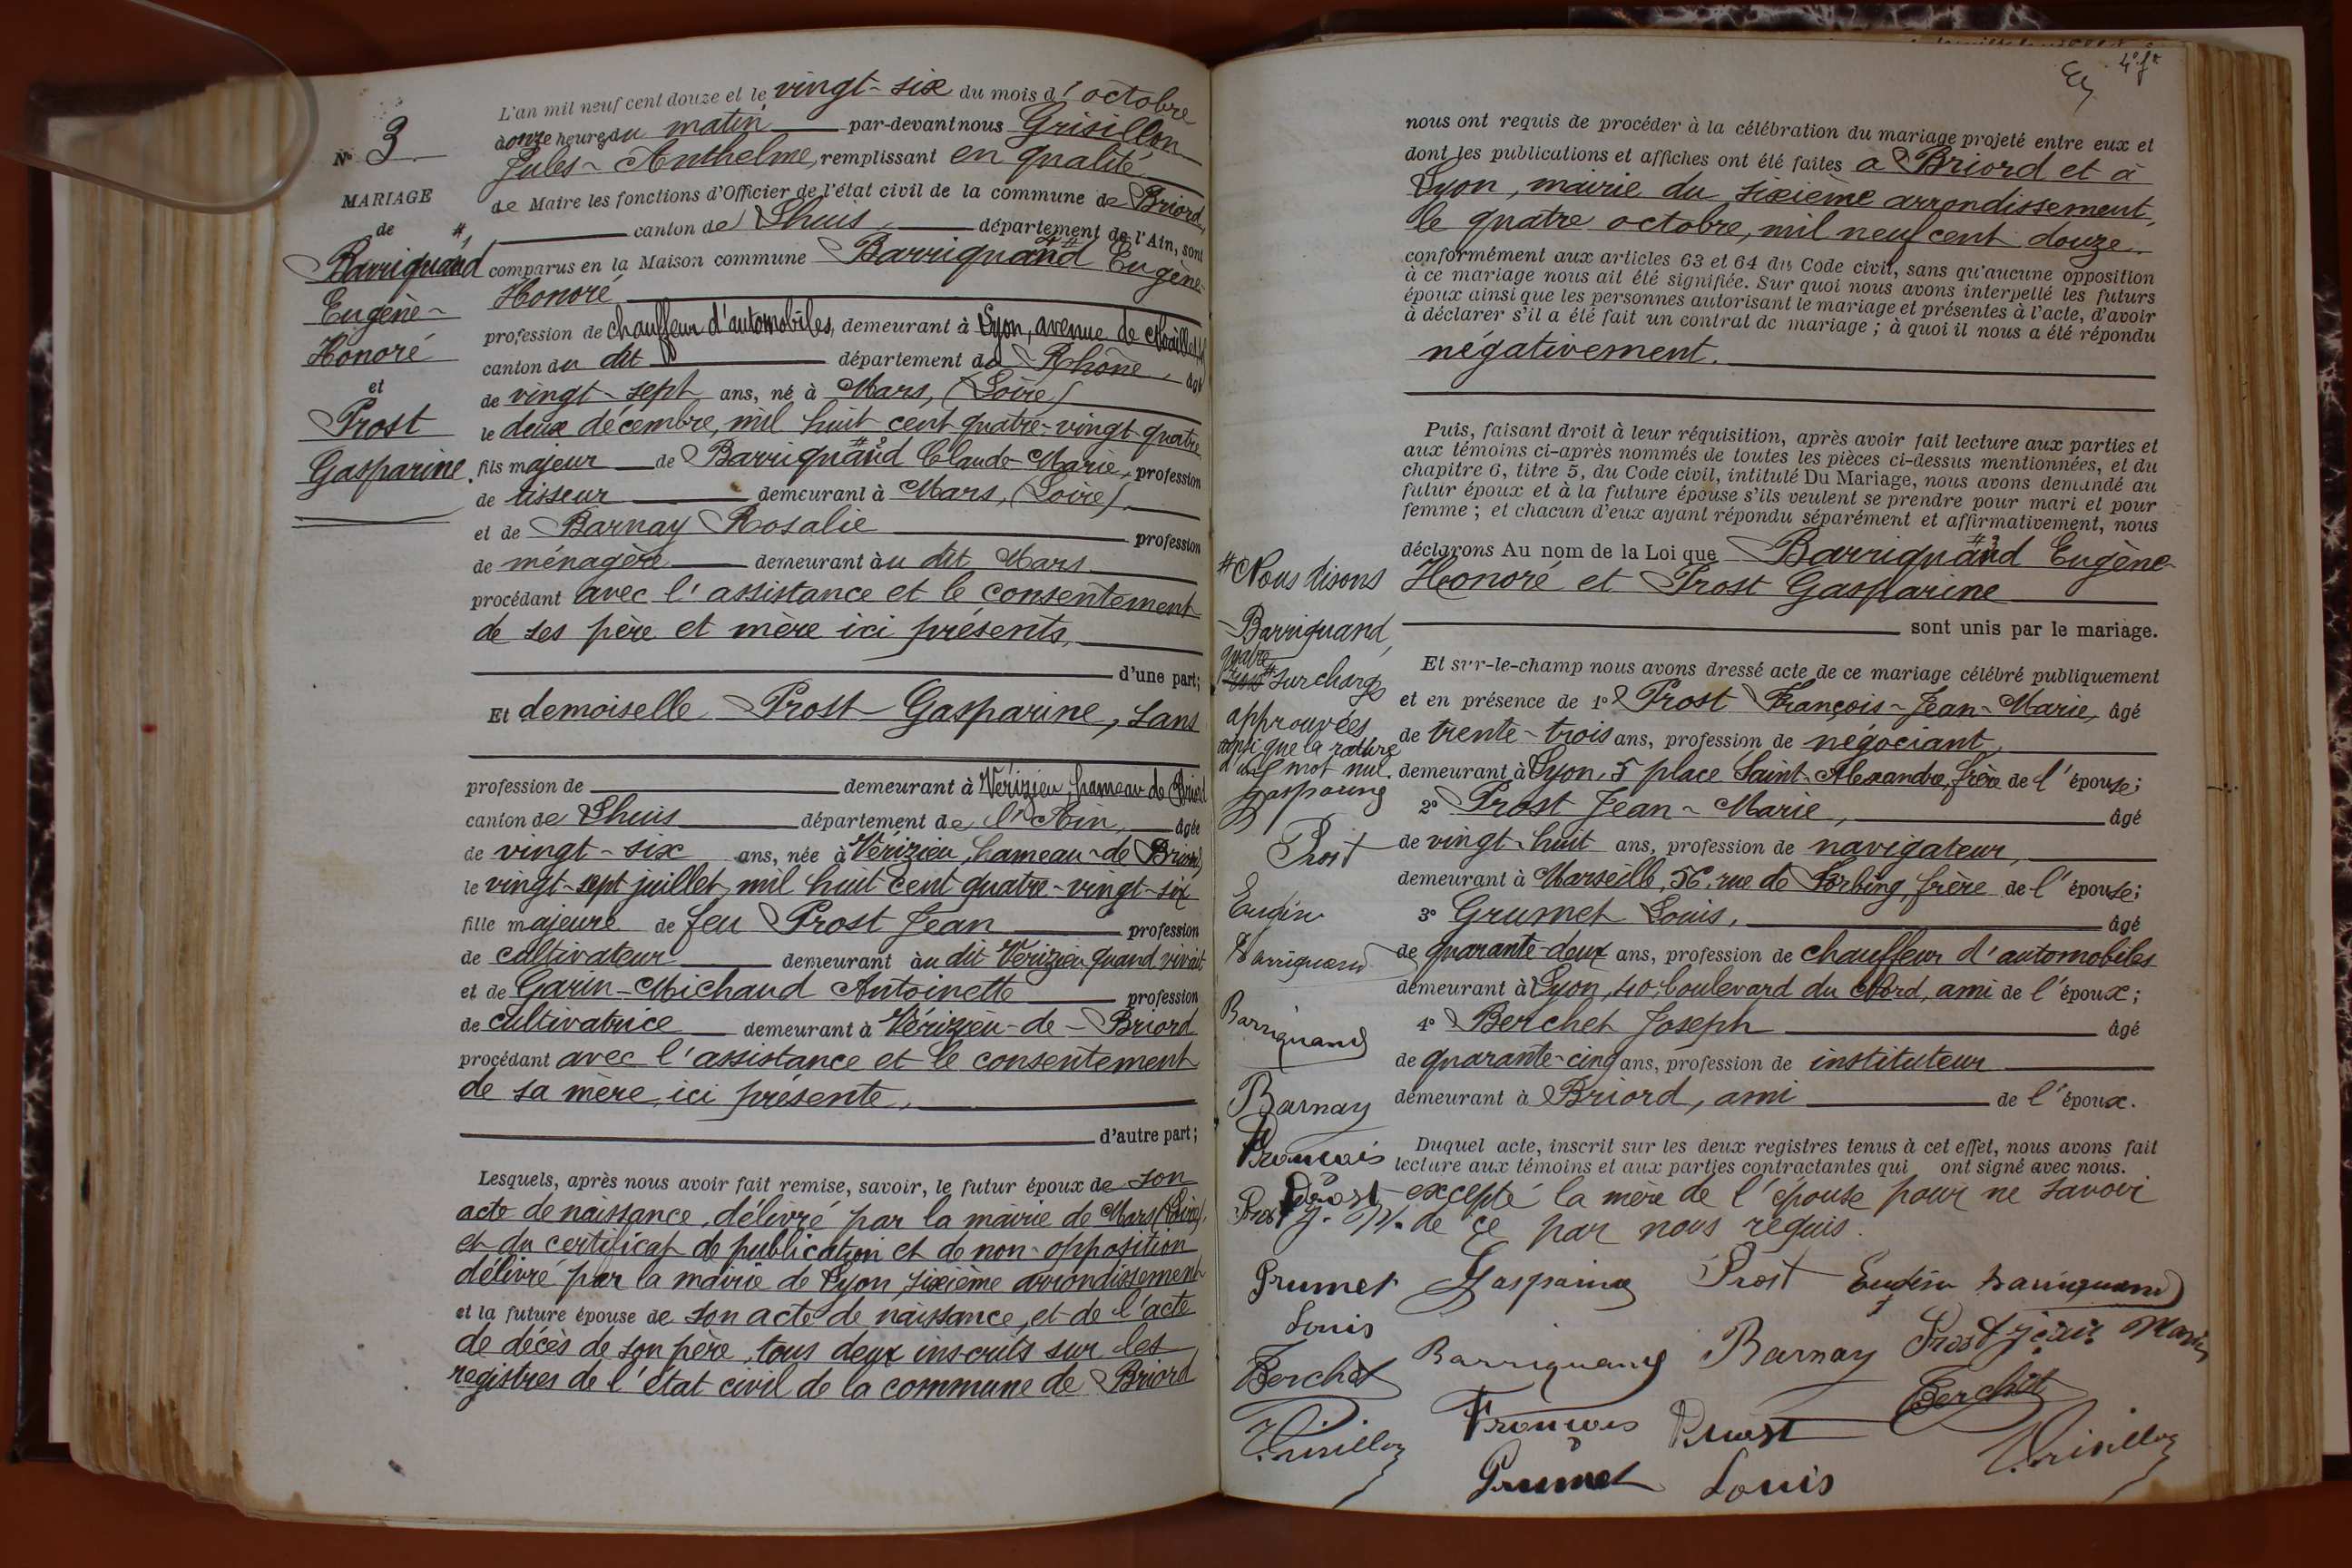 N° 3
MARIAGE
de
Barriquand
Eugène-
Honoré
et
Prost
Gasparine.
L'an mil neuf cent douze et le vingt-six du mois d'octobre
à onze heures du matin par-devant nous Grisillon
Jules-Anthelme, remplissant en qualité
de Maire les fonctions d'Officier de l'état civil de la commune de Briord,
canton de Lhuis, département de l'Ain, sont
comparus en la Maison commune Barriquand Eugène-
Honoré
profession de chauffeur d'automobiles, demeurant à Lyon, avenue de
canton du dit département du Rhône, âgé
de vingt-sept ans, né à Mars, (Loire)
le deux décembre, mil huit cent quatre-vingt-quatre
fils majeur de Barriquand Claude-Marie, profession
de tisseur demeurant à Mars, (Loire),
et de Barnay Rosalie profession
de ménagère demeurant au dit Mars.
procédant avec l'assistance et le consentement
de ses père et mère ici présents,
d'une part;
Et demoiselle Prost Gasparine, sans
profession de demeurant à Vérizieu, hameau de Briord
canton de Lhuis département de l'Ain, âgée
de vingt-six ans, née à Vérizieu, hameau-de Briord,
le vingt-sept juillet, mil huit cent quatre-vingt-six
fille majeure de feu Prost Jean profession
de cultivateur demeurant au dit Vérizieu quand vivait
et de Garin-Michaud Antoinette profession
de cultivatrice demeurant à Vérizieu-de-Briord
procédant avec l'assistance et le consentement
de sa mère, ici présente,
d'autre part;
Lesquels, après nous avoir fait remise, savoir, le futur époux de son
acte de naissance, délivré par la mairie de Mars (Loire),
et du certificat de publication et de non-opposition
délivré par la mairie de Lyon, sixième arrondissement
et la future épouse de son acte de naissance, et de l'acte
de décès de son père, tous deux inscrits sur les
registres de l'état civil de la commune de Briord
nous ont requis de procéder à la célébration du mariage projeté entre eux et
dont les publications et affiches ont été faites à Briord et à
Lyon, mairie du sixième arrondissement,
le quatre octobre, mil neuf cent douze.
conformément aux articles 63 et 64 du Code civil, sans qu'aucune opposition
à ce mariage nous ait été signifiée. Sur quoi nous avons interpellé les futurs
époux ainsi que les personnes autorisant le mariage et présentes à l'acte, d'avoir
à déclarer s'il a été fait un contrat de mariage; à quoi il nous a été répondu
négativement.
Puis, faisant droit à leur réquisition, après avoir fait lecture aux parties et
aux témoins ci-après nommés de toutes les pièces ci-dessus mentionnées, et du
chapitre 6, titre 5, du Code civil, intitulé Du Mariage, nous avons demandé au
futur époux et à la future épouse s'ils veulent se prendre pour mari et pour
femme; et chacun d'eux ayant répondu séparément et affirmativement, nous
déclarons Au nom de la Loi que Barriquand Eugène-
Honoré et Prost Gasparine
sont unis par le mariage.
Et sur-le-champ nous avons dressé acte de ce mariage célébré publiquement
et en présence de 1° Prost François-Jean-Marie, âgé
de trente-trois ans, profession de négociant,
demeurant à Lyon, 5 place Saint-Alexandre, frère de l'épouse;
2° Prost Jean-Marie, âgé
de vingt-huit ans, profession de navigateur,
demeurant à Marseille, 56, rue de frère de l'épouse;
3° Grumet Louis, âgé
de quarante-deux ans, profession de chauffeur d'automobiles
demeurant à Lyon, 40, boulevard du Nord, ami de l'époux;
4° Berchet Joseph âgé
de quarante-cinq ans, profession de instituteur
demeurant à Briord, ami de l'époux.
Duquel acte, inscrit sur les deux registres tenus à cet effet, nous avons fait
lecture aux témoins et aux parties contractantes qui ont signé avec nous.
excepté la mère de l'épouse pour ne savoir
de ce par nous requis.
# Nous disons
-Barriquand,
quatre
surcharges
approuvées
ainsi que la rature
d'un mot nul.
Gasparine
Prost
Eugène
Barriquand
Barriquand
Barnay
François
Prost
Prost J. M.
Grumet
Louis
Berchet
Grisillon
Gasparine Prost Eugène Barriquand
Barriquand Barnay Prost Jean Marie
François Prost Berchet
Grumet Louis Grisillon